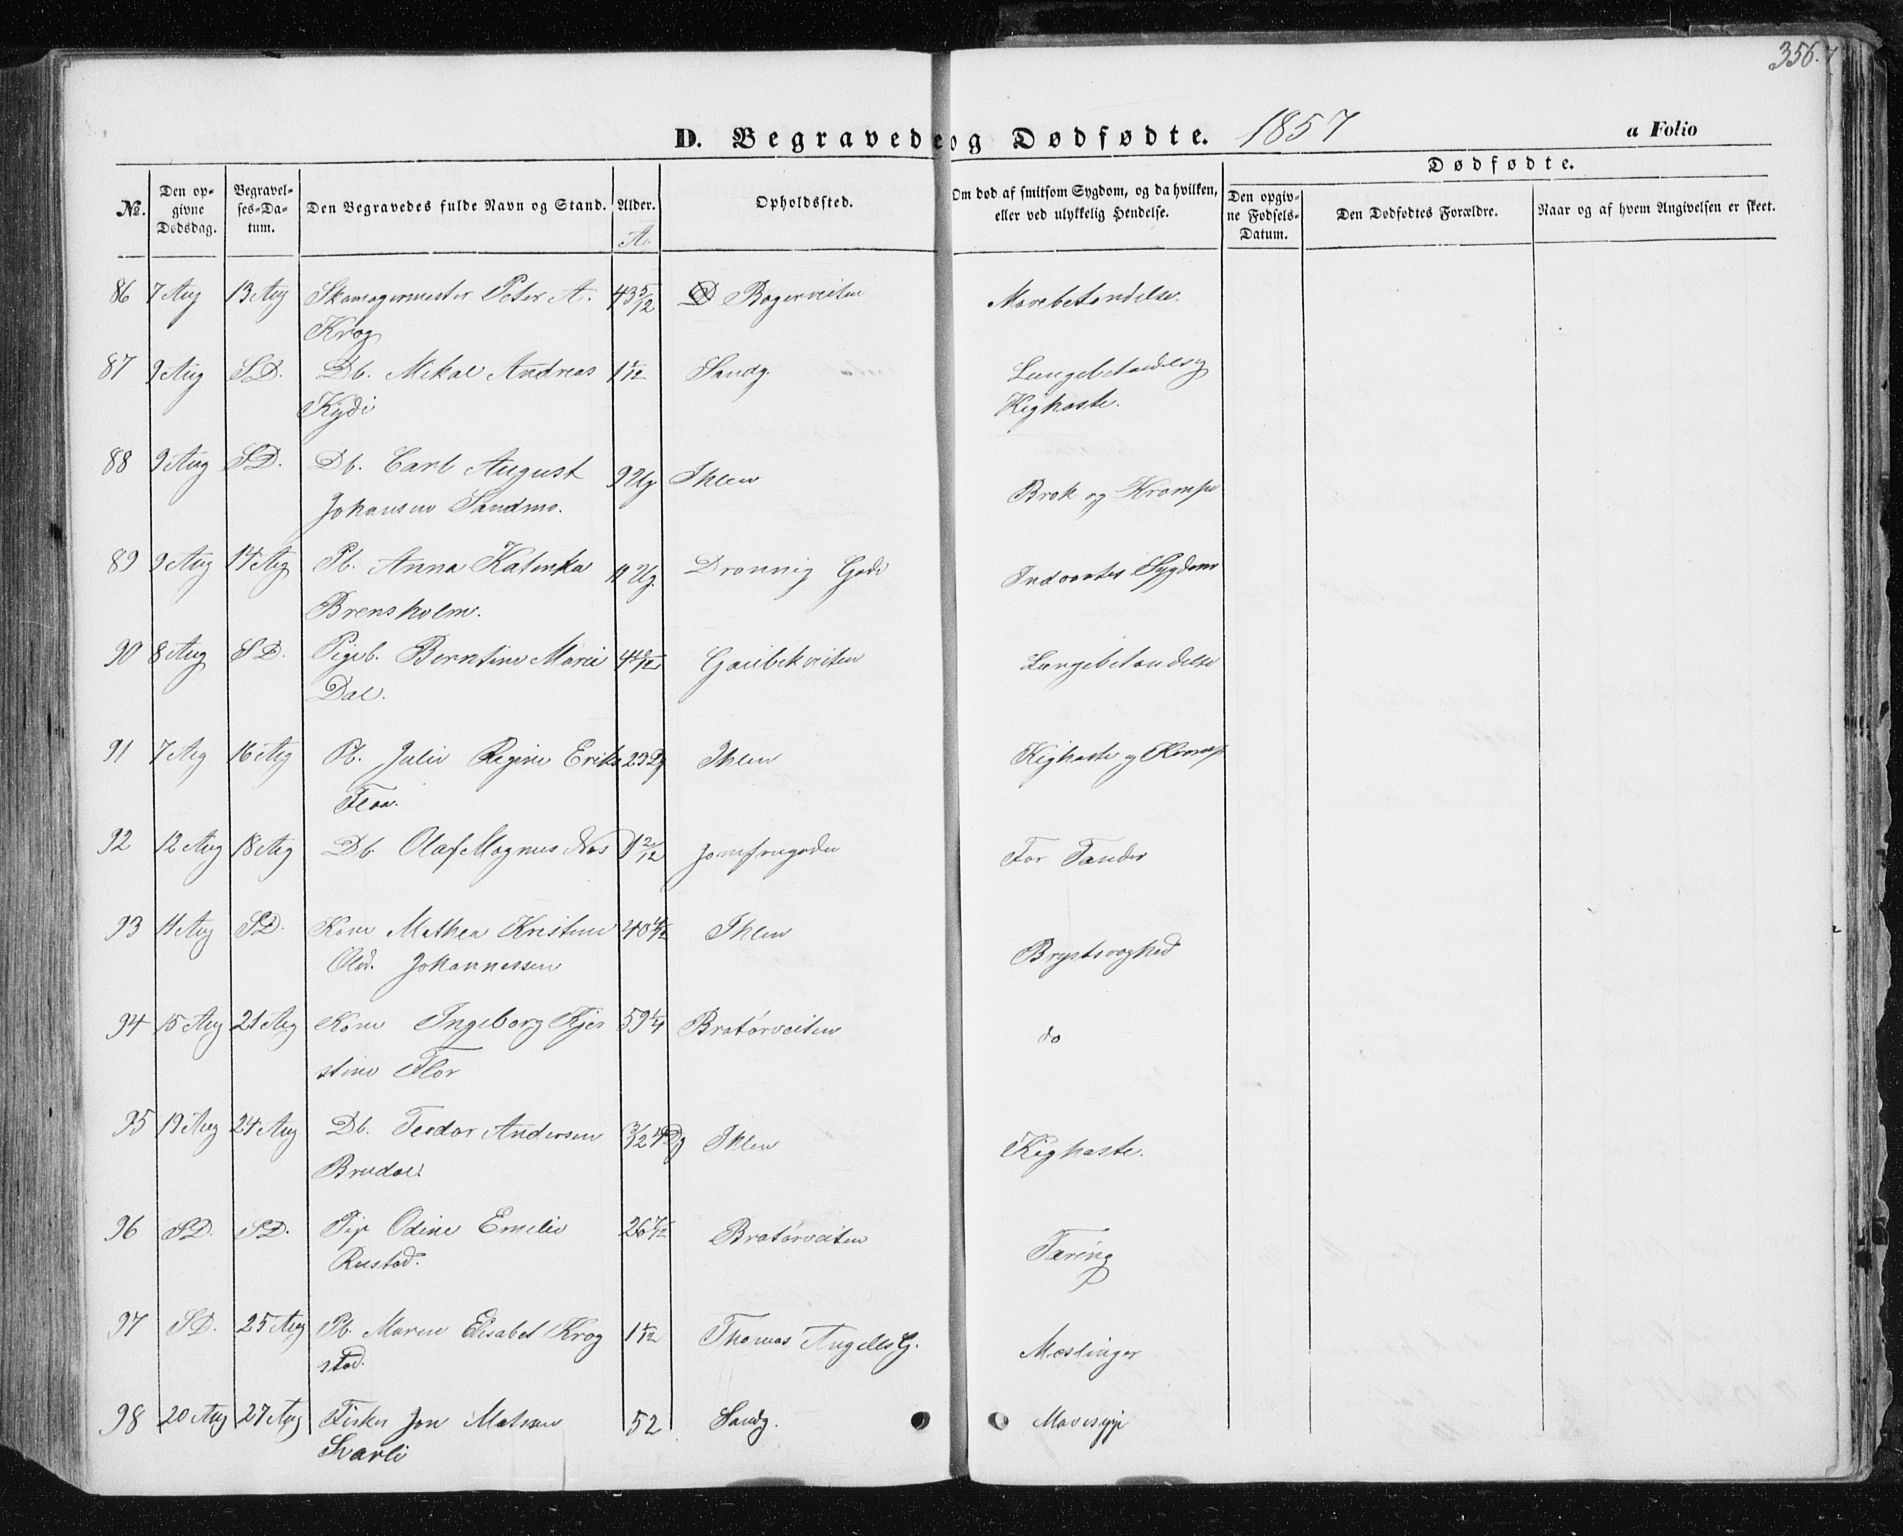 356.
D. Begravede og Dødfødte. 1857 a Folio
Dødfødte.
No. Den opgivne Dødsdag. Begravelses-Datum. Den Begravedes fulde Navn og Stand. Alder. Opholdssted. Om død af smitsom Sygdom, og da hvilken, eller ved ulykkelig Hendelse. Den opgivne Fødsels-Datum. Den Dødfødtes Forældre. Naar og af hvem Angivelsen er skeet.
86 7 Aug 13 Aug Skomagermester Peter A. 43 5/12 Bagerveiten Mavebetændelse.
Krog
87 9 Aug SD. Db. Mikal Andreas Sandg. Lungebetændels og
Kydi Kighoste.
88 9 Aug SD. Db. Carl August 9 Ug Ihlen Brok og Krampe
Johansen Sandmo.
89 9 Aug 14 Aug Pb. Anna Katinka 11 Ug. Dronnig Gade Indvortes Sygdom
Brensholm.
90 8 Aug SD. Pigeb. Berntine Marie Gaubekveiten Lungebetændelse
Dal.
91 7 Aug 16 Aug Pb. Julie Regine Erika 23 Dg Ihlen Kighoste og Kramp
Flaa.
92 12 Aug 18 Aug Db. Olaf Magnus Næs 1 2/12 Jomfrugaden For Tænder
93 11 Aug SD. Kone Mathea Kristine Ihlen Brystsvaghed
Olsd. Johannessen
94 15 Aug 21 Aug Kone Ingeborg Kjer 59 1/4 Bratørveiten do
stine Flor
95 19 Aug 24 Aug Db. Teodor Andersen 3/12 14 Dg Ihlen Kighoste.
Brudal
96 SD. SD. Pige Odine Emilie 26 7/12 Bratørveiten Tæring
Rustad.
97 SD. 25 Aug Pb. Maren Elisabet Krog 1 1/12 Thomas Angells G. Mæslinger
stad.
98 20 Aug 27 Aug Fisker Jon Matsen 52 Sandg. Mavesyge
Svarli